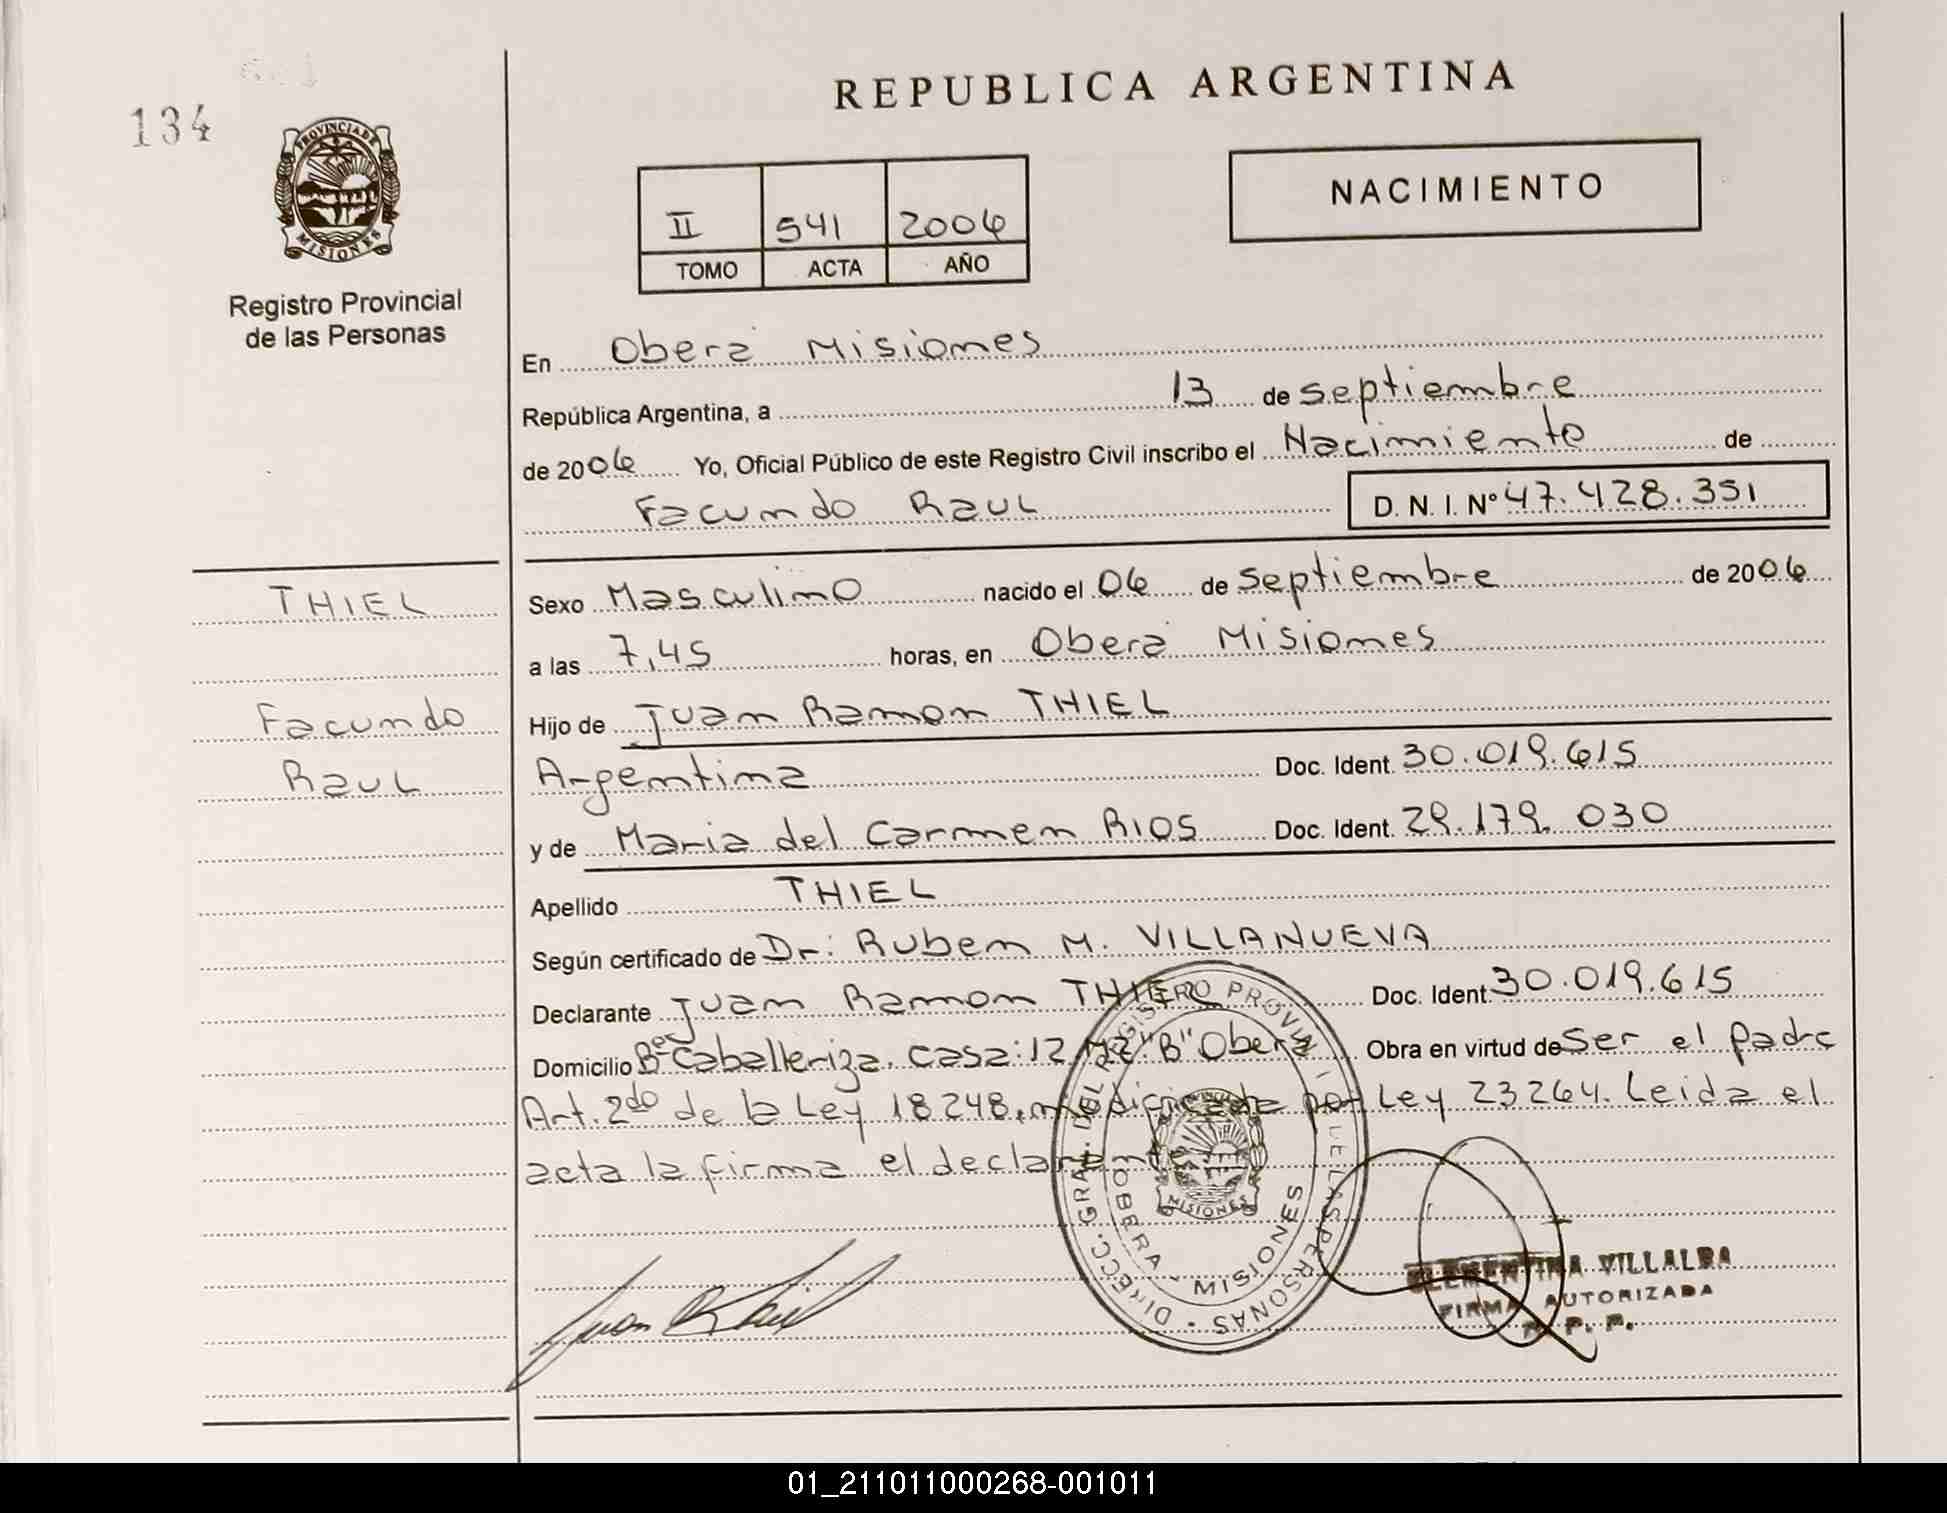 134
PROVINCIA DE
MISIONES
Registro Provincial
de las Personas
REPUBLICA ARGENTINA
NACIMIENTO
II 541 2006
TOMO ACTA AÑO
En Oberá Misiones
República Argentina, a 13 de septiembre
de 2006 Yo, Oficial Público de este Registro Civil inscribo el Nacimiento de
Facundo Raul D. N. I. Nº 47.428.351
THIEL
Facundo
Raul
Sexo Masculino nacido el 06 de septiembre de 2006
a las 7,45 horas, en Oberá Misiones
Hijo de Juan Ramon THIEL
Argentina Doc. Ident. 30.019.615
y de Maria del Carmen RIOS Doc. Ident. 29.179.030
Apellido THIEL
Según certificado de Dr: Ruben M. VILLANUEVA
Declarante Juan Ramon THIEL Doc. Ident. 30.019.615
Domicilio Caballeriza. casa: 12 MZ "B" Oberá Obra en virtud de ser el padre
Art. 2do de la Ley 18.248, modificada por Ley 23264. Leida el
acta la firma el
DIRECC. GRAL. DEL REGISTRO PROVINCIAL DE LAS PERSONAS
OBERA - MISIONES
MISIONES
CLEMENTINA VILLALBA
FIRMA AUTORIZADA
R. P. P.
01_211011000268-001011